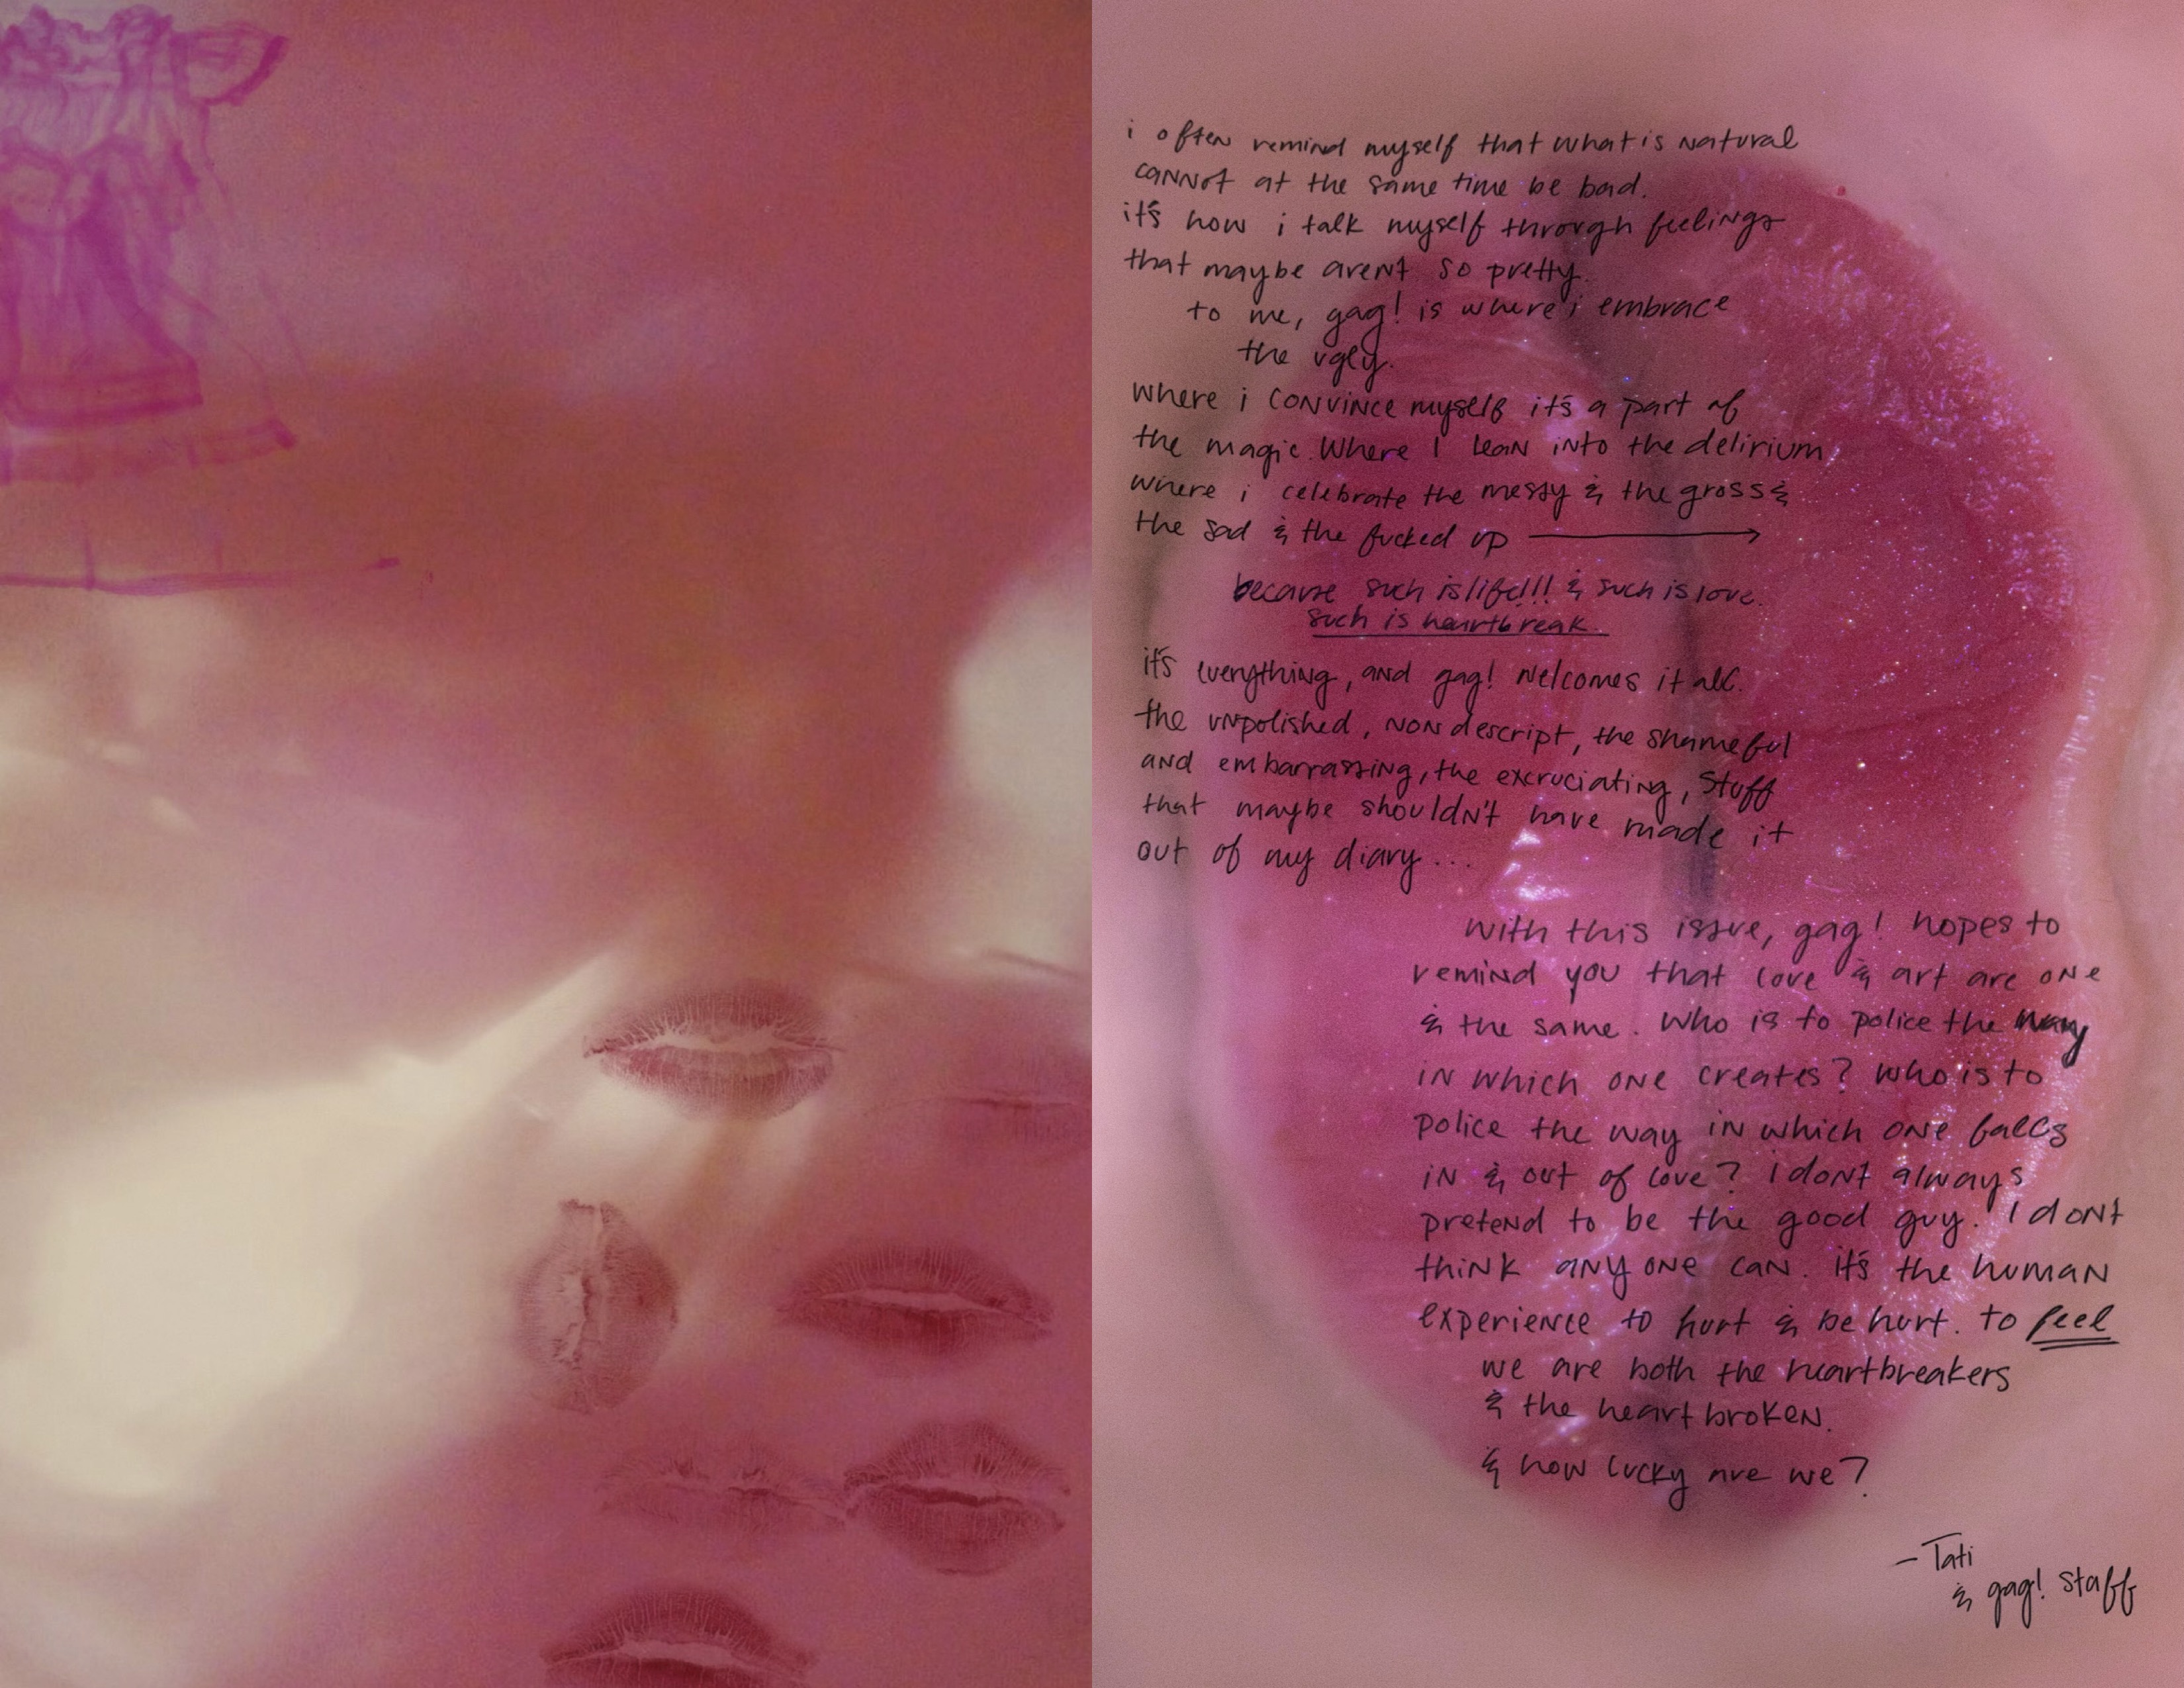 i often remind myself that what is natural
cannot at the same time be bad.
it's how i talk myself through feelings
that maybe arent so pretty.
to me, gag! is where i embrace
the ugly.
where i convince myself it's a part of
the magic. Where I lean into the delirium
where i celebrate the messy & the gross &
the sad & the fucked up →
because such is life!!! & such is love.
such is heartbreak.
it's everything, and gag! welcomes it all.
the unpolished, nondescript, the shameful
and embarrassing, the excruciating, stuff
that maybe shouldn't have made it
out of my diary...
with this issue, gag! hopes to
remind you that love & art are one
& the same. Who is to police the way
in which one creates? who is to
police the way in which one falls
in & out of love? i dont always
pretend to be the good guy. I dont
think anyone can. it's the human
experience to hurt & be hurt. to feel
we are both the heartbreakers
& the heartbroken.
& how lucky are we?
- Tati
& gag! staff